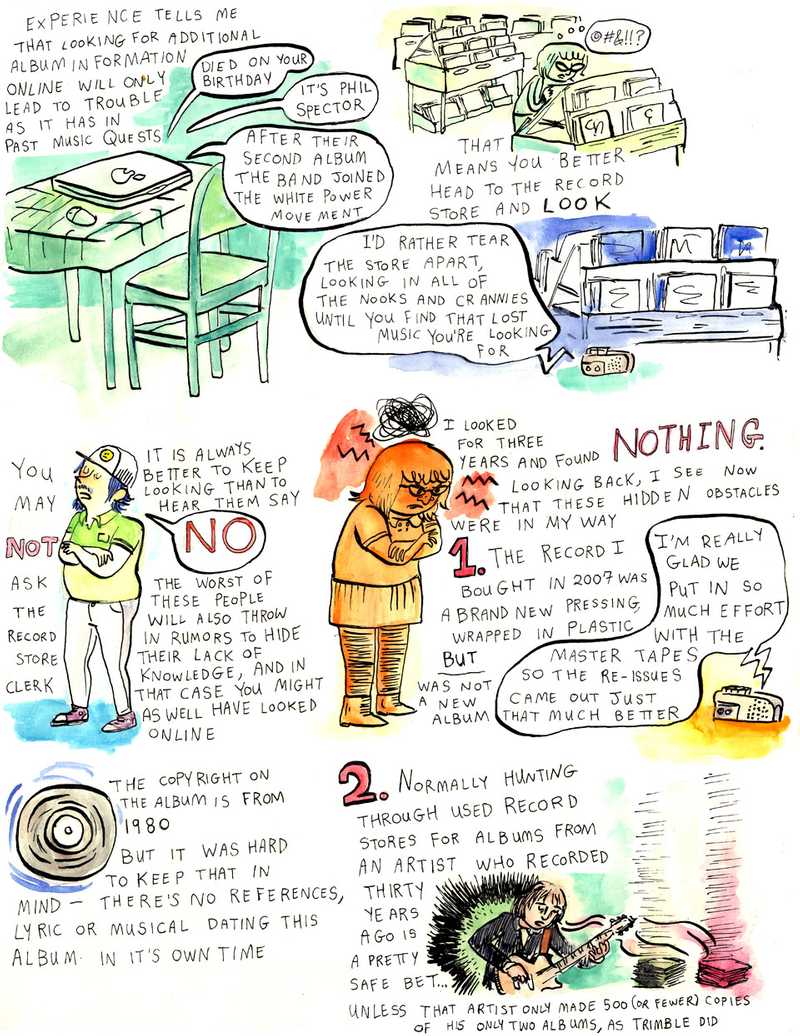 EXPERIENCE TELLS ME
THAT LOOKING FOR ADDITIONAL
ALBUM INFORMATION
ONLINE WILL ONLY
LEAD TO TROUBLE
AS IT HAS IN
PAST MUSIC QUESTS
DIED ON YOUR
BIRTHDAY
IT'S PHIL
SPECTOR
AFTER THEIR
SECOND ALBUM
THE BAND JOINED
THE WHITE POWER
MOVEMENT
@#&!!?
THAT
MEANS YOU BETTER
HEAD TO THE RECORD
STORE AND LOOK
I'D RATHER TEAR
THE STORE APART,
LOOKING IN ALL OF
THE NOOKS AND CRANNIES
UNTIL YOU FIND THAT LOST
MUSIC YOU'RE LOOKING
FOR
YOU
MAY
NOT
ASK
THE
RECORD
STORE
CLERK
IT IS ALWAYS
BETTER TO KEEP
LOOKING THAN TO
HEAR THEM SAY
NO
THE WORST OF
THESE PEOPLE
WILL ALSO THROW
IN RUMORS TO HIDE
THEIR LACK OF
KNOWLEDGE, AND IN
THAT CASE YOU MIGHT
AS WELL HAVE LOOKED
ONLINE
I LOOKED
FOR THREE
YEARS AND FOUND NOTHING.
LOOKING BACK, I SEE NOW
THAT THESE HIDDEN OBSTACLES
WERE IN MY WAY
1. THE RECORD I
BOUGHT IN 2007 WAS
A BRAND NEW PRESSING,
WRAPPED IN PLASTIC
BUT
WAS NOT
A NEW
ALBUM
I'M REALLY
GLAD WE
PUT IN SO
MUCH EFFORT
WITH THE
MASTER TAPES
SO THE RE-ISSUES
CAME OUT JUST
THAT MUCH BETTER
THE COPYRIGHT ON
THE ALBUM IS FROM
1980
BUT IT WAS HARD
TO KEEP THAT IN
MIND — THERE'S NO REFERENCES,
LYRIC OR MUSICAL DATING THIS
ALBUM IN IT'S OWN TIME
2. NORMALLY HUNTING
THROUGH USED RECORD
STORES FOR ALBUMS FROM
AN ARTIST WHO RECORDED
THIRTY
YEARS
AGO IS
A PRETTY
SAFE BET...
UNLESS THAT ARTIST ONLY MADE 500 (OR FEWER) COPIES
OF HIS ONLY TWO ALBUMS, AS TRIMBLE DID